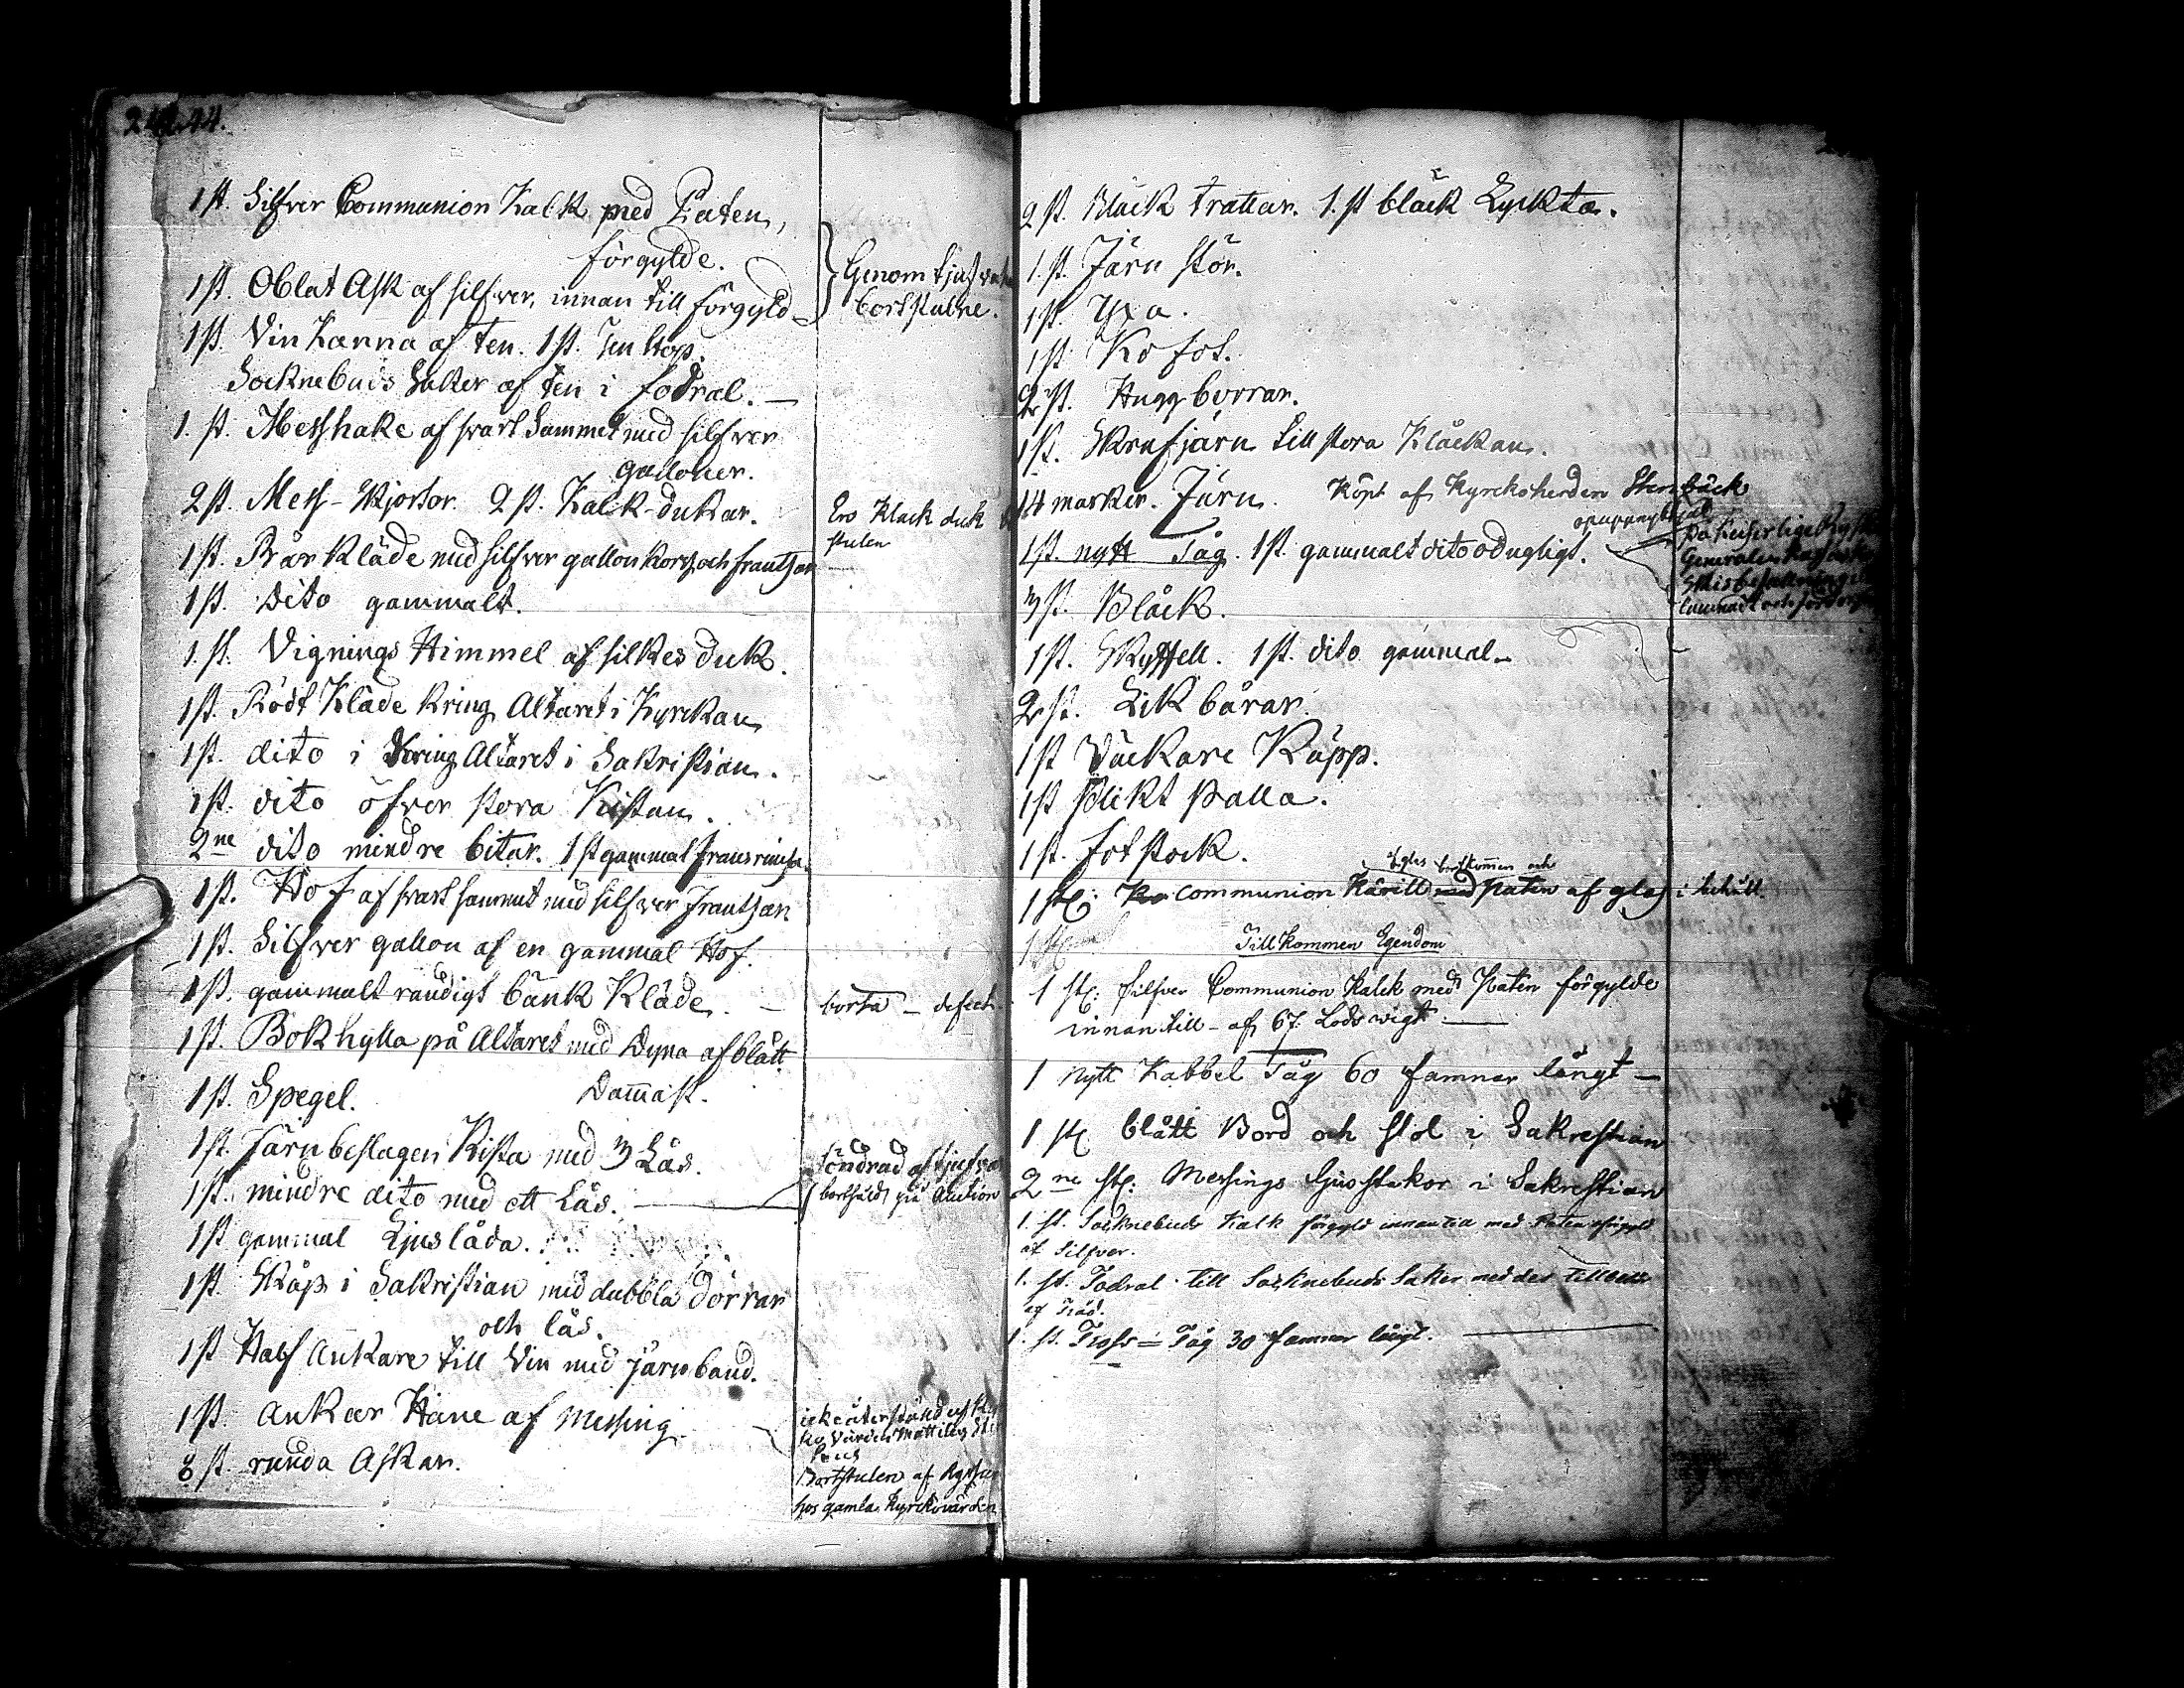 1 st. Silfver Communion Kalk med Paten,
förgylde.
1 st. Oblat Ask af silfver, innan till förgyld
Genom tjufvar
bortstulne.
1 st. Vin Kanna af ten. 1 st. Ten Stop.
Socknebuds Saker af ten i fodral. —
1. st. Messhake af svart Sammet med silfver
galloner.
2 st. Mess-Skjortor. 2 st. Kalk-dukar.
En Klack duk
stulen
1 st. Bår Kläde med silfver gallon Kors och frantsar
1 st. Dito gammalt.
1. st. Vignings Himmel af silkes duk.
1 st. Rödt Kläde Kring Altaret i Kyrckan
1 st. dito i Kring Altaret i Sakristian.
1 st. dito öfver stora Kistan.
2ne dito mindre bitar. 1 st gammal frans
1 st. Hof af svart sammet med silfver frantsar
1 st. Silfver gallon af en gammal Hof.
1 st. gammalt randigt bänk Kläde. —
borta — defect.
1 st. Bokhylla på Altaret med Dyna af blått
Damast.
1 st. Spegel.
1 st. Järnbeslagen Kista med 3 Lås.
söndrad af tjufvar
1 st. mindre dito med ett Lås.
bortsåld på Auction
1 st gammal Ljuslåda.
1 st. Skåp i Sakristian med dubbla dörrar
och lås.
1 st Half Ankare till Vin med järnband.
1 st. Ankar Hane af Messing
icke återstånd af
8 st. runda Askar.
Bortstulen af Ryssar
hos gamla Kyrckovärden
2 st. Bläck trattar. 1. st bläck Lyckta.
1. st. Järn stör.
1 st. Yxa.
1 st. Ko fot.
2 st. Huggborrar.
1 st. Skrufjärn till stora Klåckan.
14 marker. Järn. Köpt af Kyrckoherden
1 st. nytt Tåg. 1 st. gammalt dito odugligt.
På Keiserliga Ryska
Generalen
3 st. Blåck.
1 st. Skyffell. 1 st. dito gammal.
2 st. Lik bårar.
1 st Väckare Käpp.
1 st Plikt Palla.
1 st. fotstock.
af glas bortkommen och
1 st. Communion Kärill med Paten af glas i behåll.
Tillkommen Egendom
1 st. Silfver Communion Kalck med Paten förgylde
innantill — af 67. Lods wigt —
1 Nytt Kabbel Tåg 60 famnar långt —
1 st blått Bord och Stol i Sakrestian
2ne st. Messings Ljusstakor i Sakrestian
1. st. Socknebuds Kalk förgyld innantill med Paten
af Silfver.
1. st. Fodral till Socknebuds Saker med des tillbehör
af Träd.
1. st. Tross = Tåg 30 famnar långt.